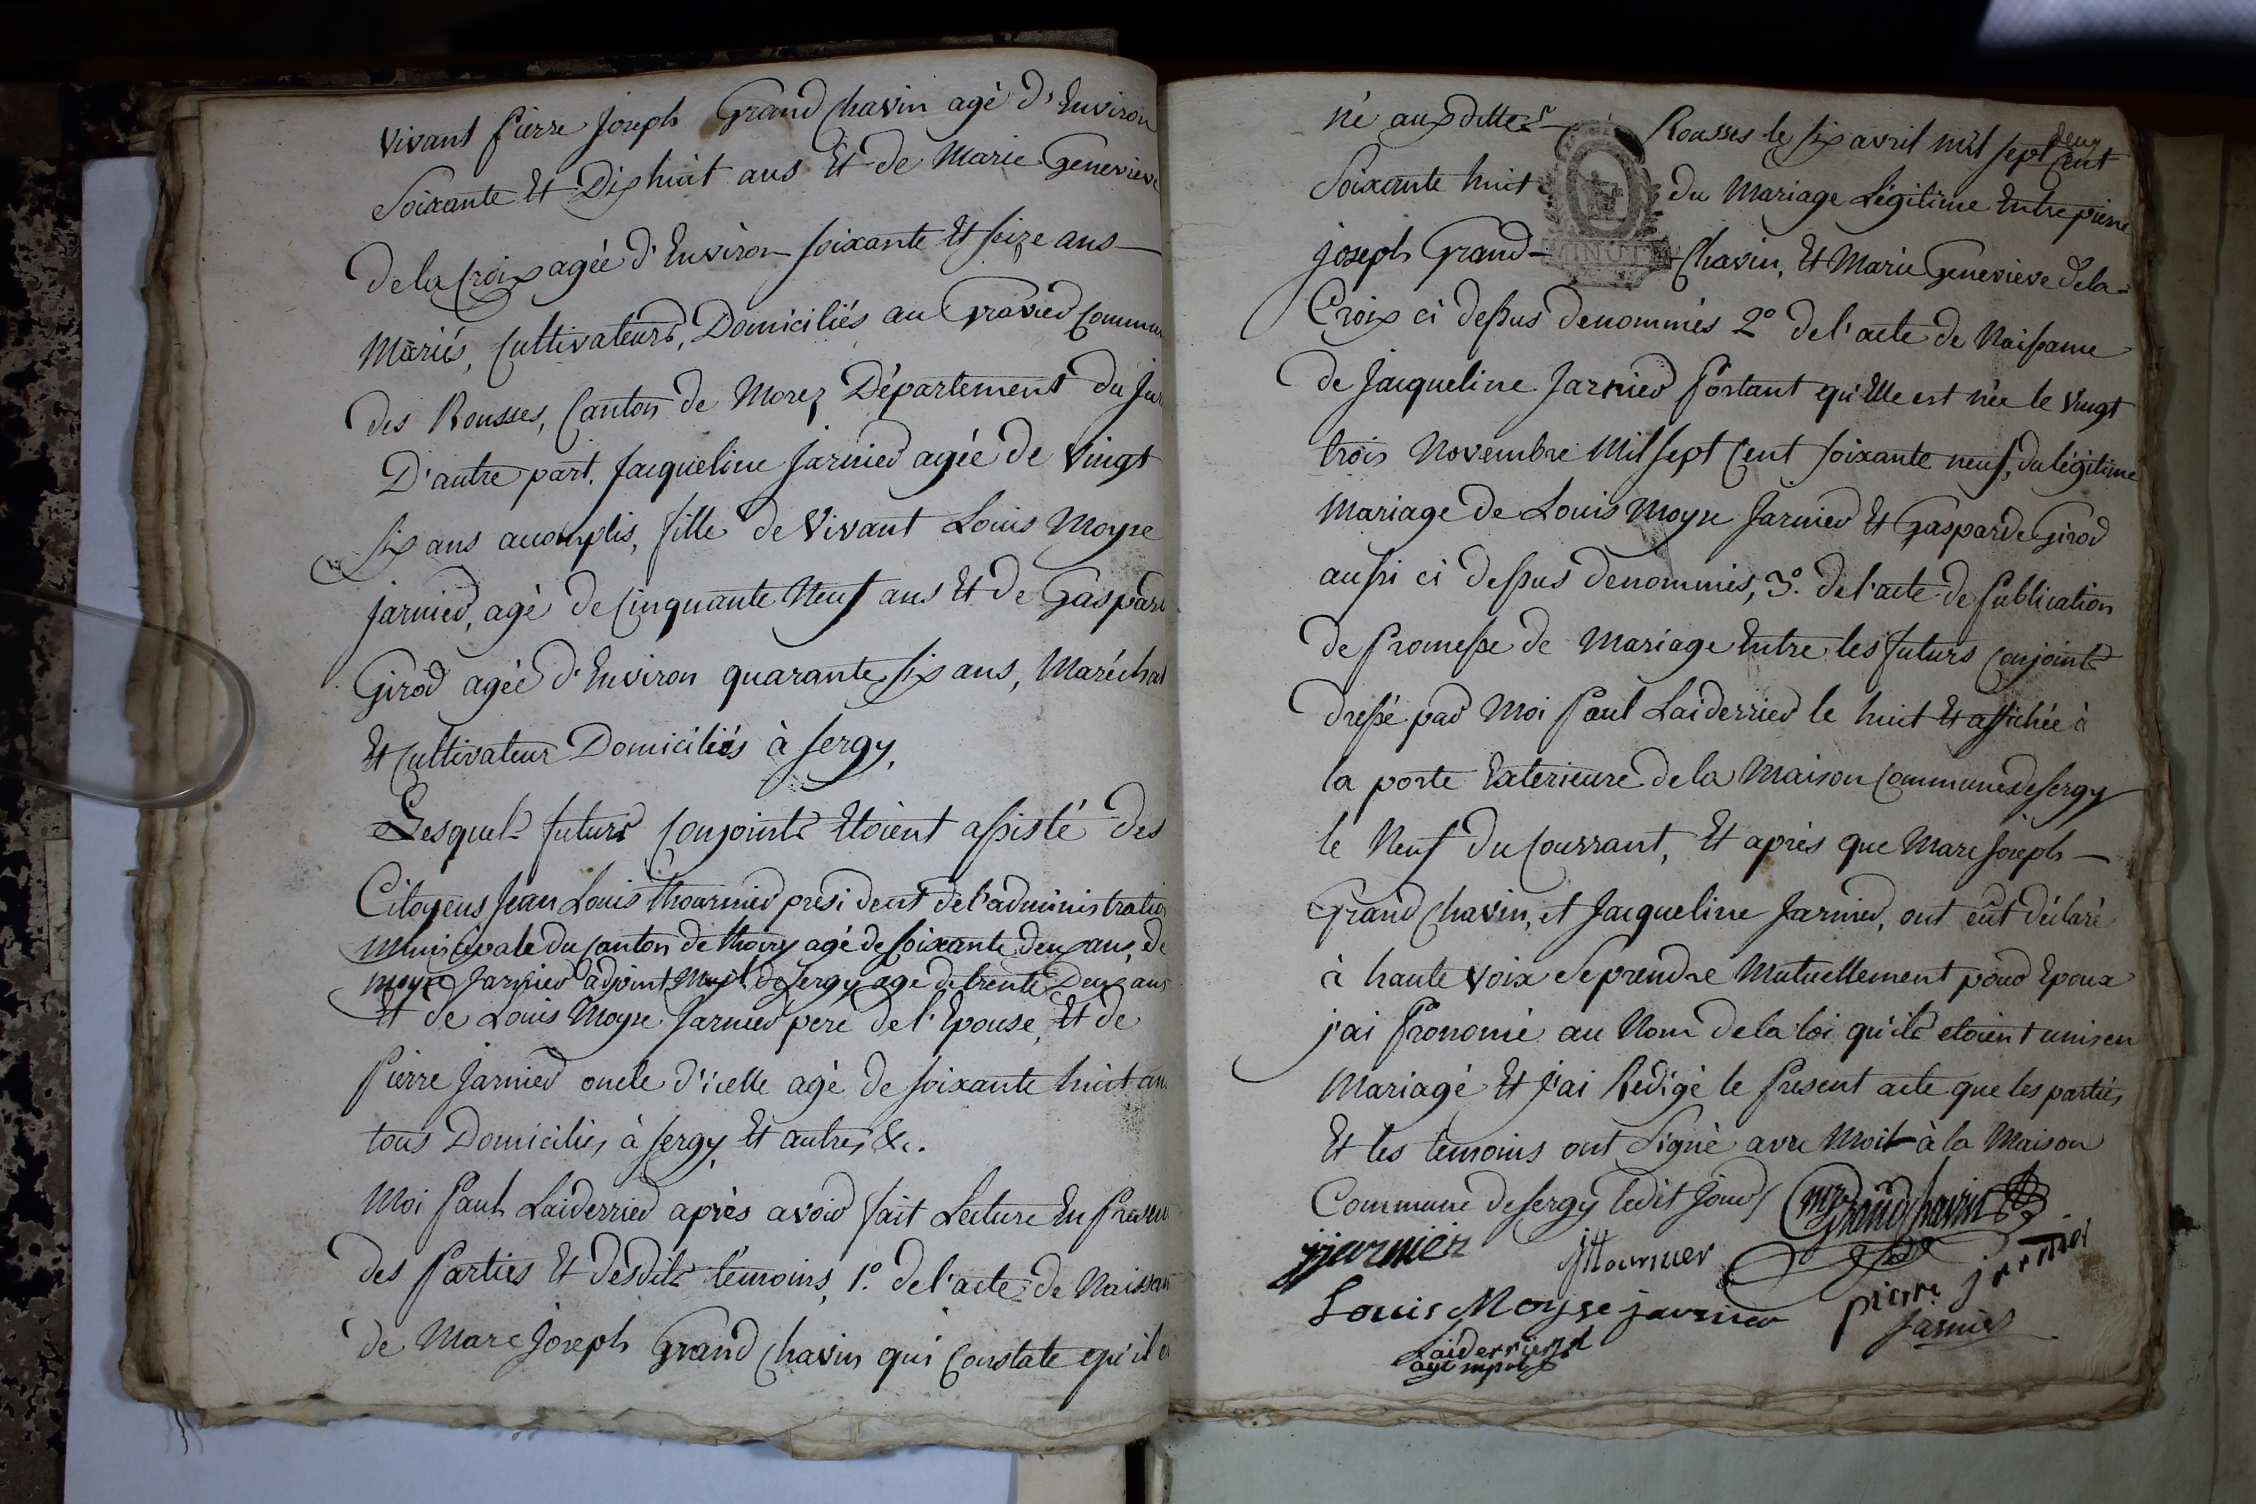 vivant Pierre Joseph Grand Chavin agé d'Environ
Soixante Et Dix huit ans Et de Marie Genevieve
de la Croix agée d'Environ soixante Et seize ans
Mariés, Cultivateurs, Domiciliés au Gravier Commu
des Rousses, Canton de Morez Département du Jur
D'autre part. Jacqueline Jarnier agée de vingt
six ans accomplis, fille de vivant Louis Moyse
Jarnier, agé de Cinquante Neuf ans Et de Gaspard
Girod agée d'Environ quarante six ans, Maréchal
Et Cultivateur Domiciliés à Sergy,
Lesquels futurs Conjoints Etoient assisté des
Citoyens Jean Louis Thournier président de l'administratio
Municipale du Canton de Thoiry agé de soixante deux ans, de
moyse Jarnier adjoint Mupl de Sergy agé de trente Deux ans
Et de Louis Moyse Jarnier pere de l'Epouse, Et de
Pierre Jarnier oncle d'icelle agé de soixante huit an
tous Domiciliés à Sergy Et autres &c.
Moi Paul Laiderrier après avoir fait Lecture En Presen
des Parties Et desdits témoins, 1º. de l'acte de Naissan
de Marc Joseph Grand Chavin qui Constate qu'il e
né aux dittes Rousses le six avril mil sept cent
deux
Soixante huit du Mariage Légitime Entre pierre
joseph Grand- Chavin, Et Marie Genevieve dela=
MINUTE
Croix ci dessus denommés 2º de l'acte de Naissance
de Jacqueline Jarnier Portant qu'Elle est née le vingt
trois Novembre Mil sept Cent soixante neuf, du légitime
Mariage de Louis Moyse Jarnier Et Gasparde Girod
aussi ci dessus denommés, 3º. de l'acte de Publication
de Promesse de Mariage Entre les futurs conjoints
dressé par Moi Paul Laiderrier le huit Et affichée à
la porte Exterieure de la Maison Commune de Sergy
le Neuf du Courrant, Et après que Marc Joseph
Grand Chavin, et Jacqueline Jarnier, ont eût déclaré
à haute voix se prendre Mutuellement pour Epoux
j'ai Prononcé au Nom de la loi qu'ils etoient unis en
Mariage Et j'ai Rédigé le Present acte que les parties
Et les temoins ont Signé avec Moi à la Maison
Commune de Sergy ledit jour
Grand Chavin
jjarnier
jthournier
Louis Moyse jarnier
pierre jarnier
Jarnier
Laiderrier